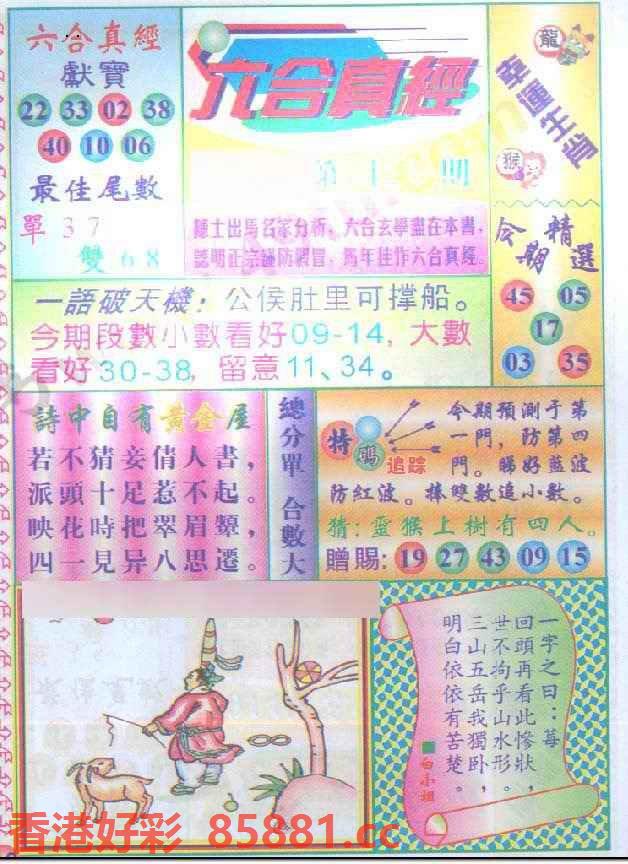 六合真經
獻寶
22 33 02 38
40 10 06
最佳尾數
單 3 7
雙 6 8
六合真經
第 期
陳士出馬名家分析,六合玄學盡在本書,
認明正宗謹防親冒,馬年佳作六合真經。
龍
幸運生肖
猴
今期精選
45 05
17
03 35
一語破天機:公侯肚里可撑船。
今期段數小數看好09-14,大數
看好30-38,留意11、34。
詩中自有黃金屋
若不猜妾倩人書,
派頭十足惹不起。
映花時把翠眉顰,
四一見异八思遷。
總分單 合數大
特碼
追踪
今期預測于第
一門,防第四
門。睇好藍波
防紅波。捧雙數追小數。
猜:靈猴上樹有四人。
贈賜:19 27 43 09 15
一字之曰:莓
回頭再看此慘狀,
世不拘乎山水形。
三山五岳我獨卧,
明白依依有苦楚。
白小姐
香港好彩 85881.cc